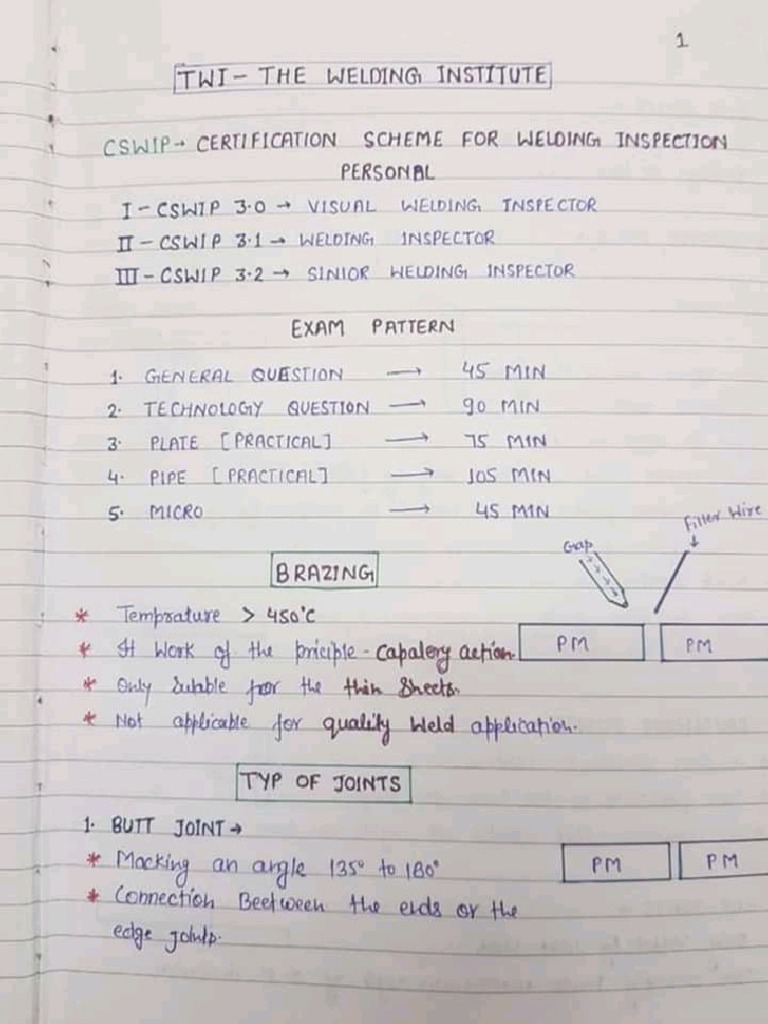 1
TWI - THE WELDING INSTITUTE
CSWIP → CERTIFICATION SCHEME FOR WELDING INSPECTION
PERSONAL
I - CSWIP 3.0 → VISUAL WELDING INSPECTOR
II - CSWIP 3.1 → WELDING INSPECTOR
III - CSWIP 3.2 → SINIOR WELDING INSPECTOR
EXAM PATTERN
1. GENERAL QUESTION → 45 MIN
2. TECHNOLOGY QUESTION → 90 MIN
3. PLATE [PRACTICAL] → 75 MIN
4. PIPE [PRACTICAL] → 105 MIN
5. MICRO → 45 MIN
Filler Wire
Gap
BRAZING
* Temprature > 450°C
* It Work of the priciple - Capalery action.
PM PM
* Only Sutable for the thin Sheets.
* Not applicable for quality Weld application.
TYP OF JOINTS
1. BUTT JOINT →
* Macking an angle 135° to 180°
PM PM
* Connection Beetween the ends or the
edge